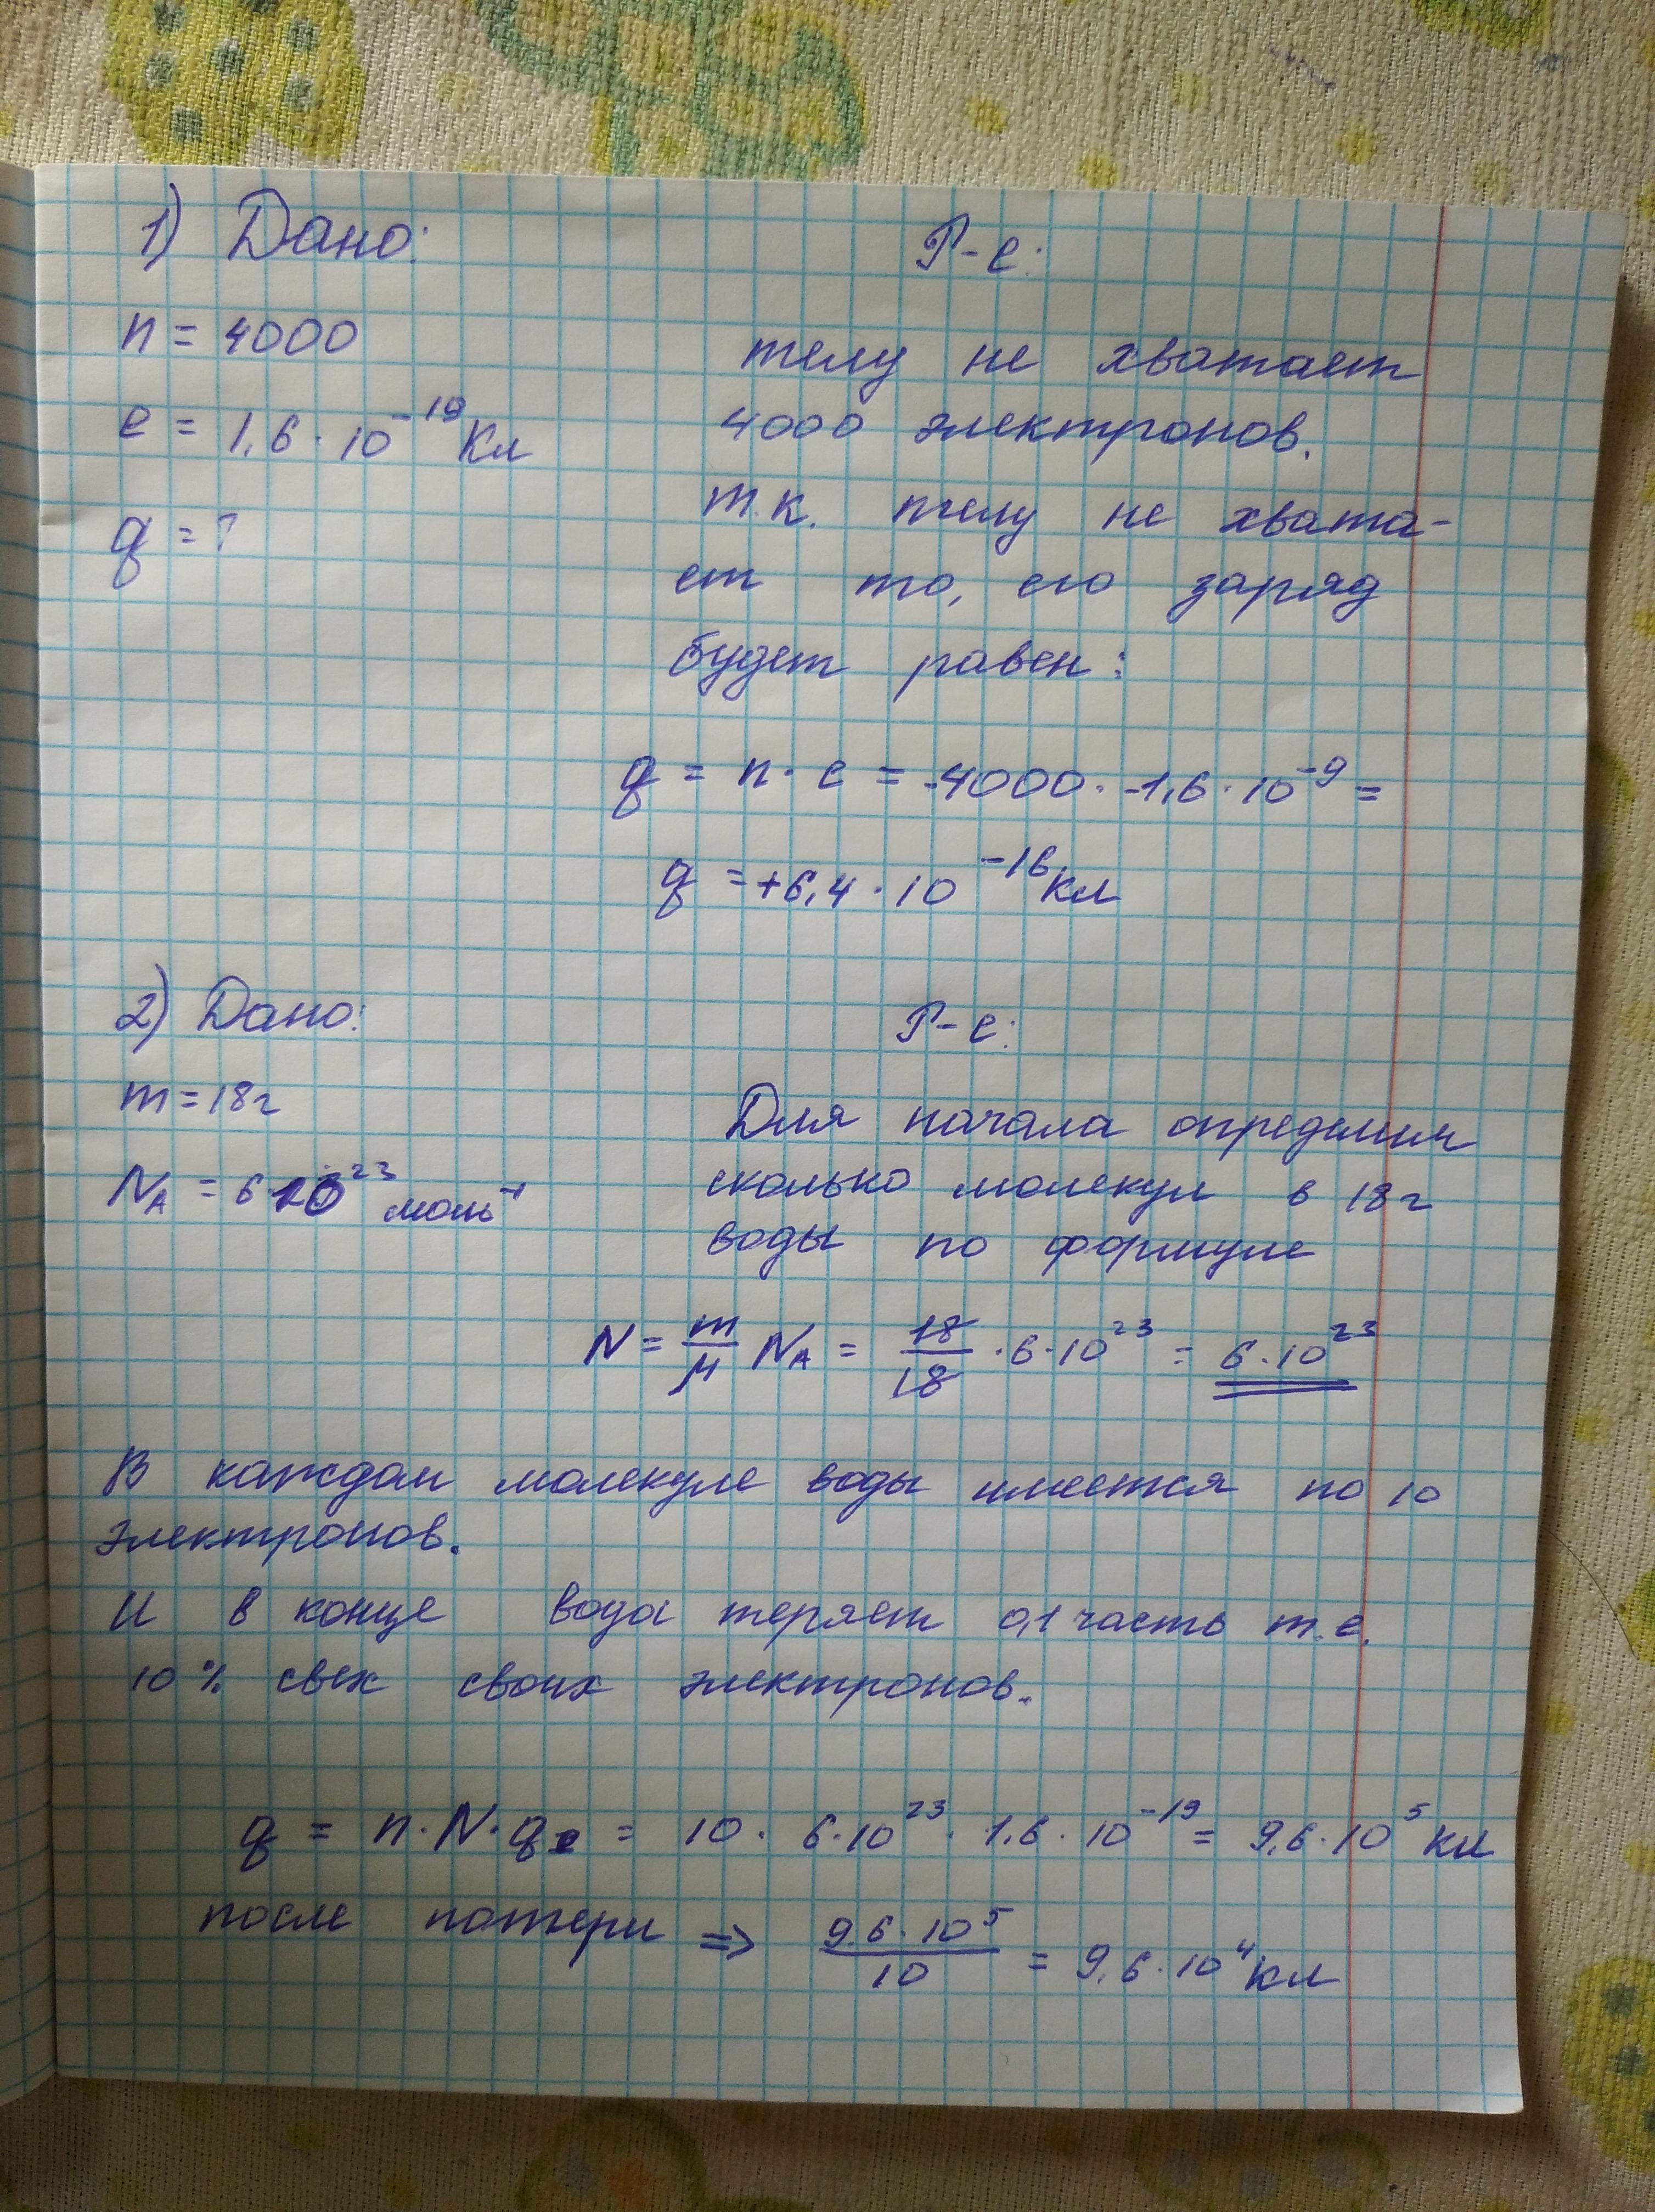 1) Дано:
Р-е:
n = 4000
e = 1,6 · 10⁻¹⁹ Кл
q = ?
телу не хватает
4000 электронов.
т.к. телу не хвата-
ет то, его заряд
будет равен:
q = n · e = -4000 · -1,6 · 10⁻⁹ =
q = +6,4 · 10⁻¹⁶ Кл
2) Дано:
Р-е:
m = 18г
N_A = 6·10²³ моль⁻¹
Для начала определим
сколько молекул в 18г
воды по формуле
N = m/μ N_A = 18/18 · 6 · 10²³ = 6 · 10²³
В каждом молекуле воды имеется по 10
электронов.
И в конце вода теряет 0,1 часть т.е.
10% свех своих электронов.
q = n · N · qe = 10 · 6 · 10²³ · 1,6 · 10⁻¹⁹ = 9,6 · 10⁵ кл
после потери => 9,6 · 10⁵/10 = 9,6 · 10⁴ кл